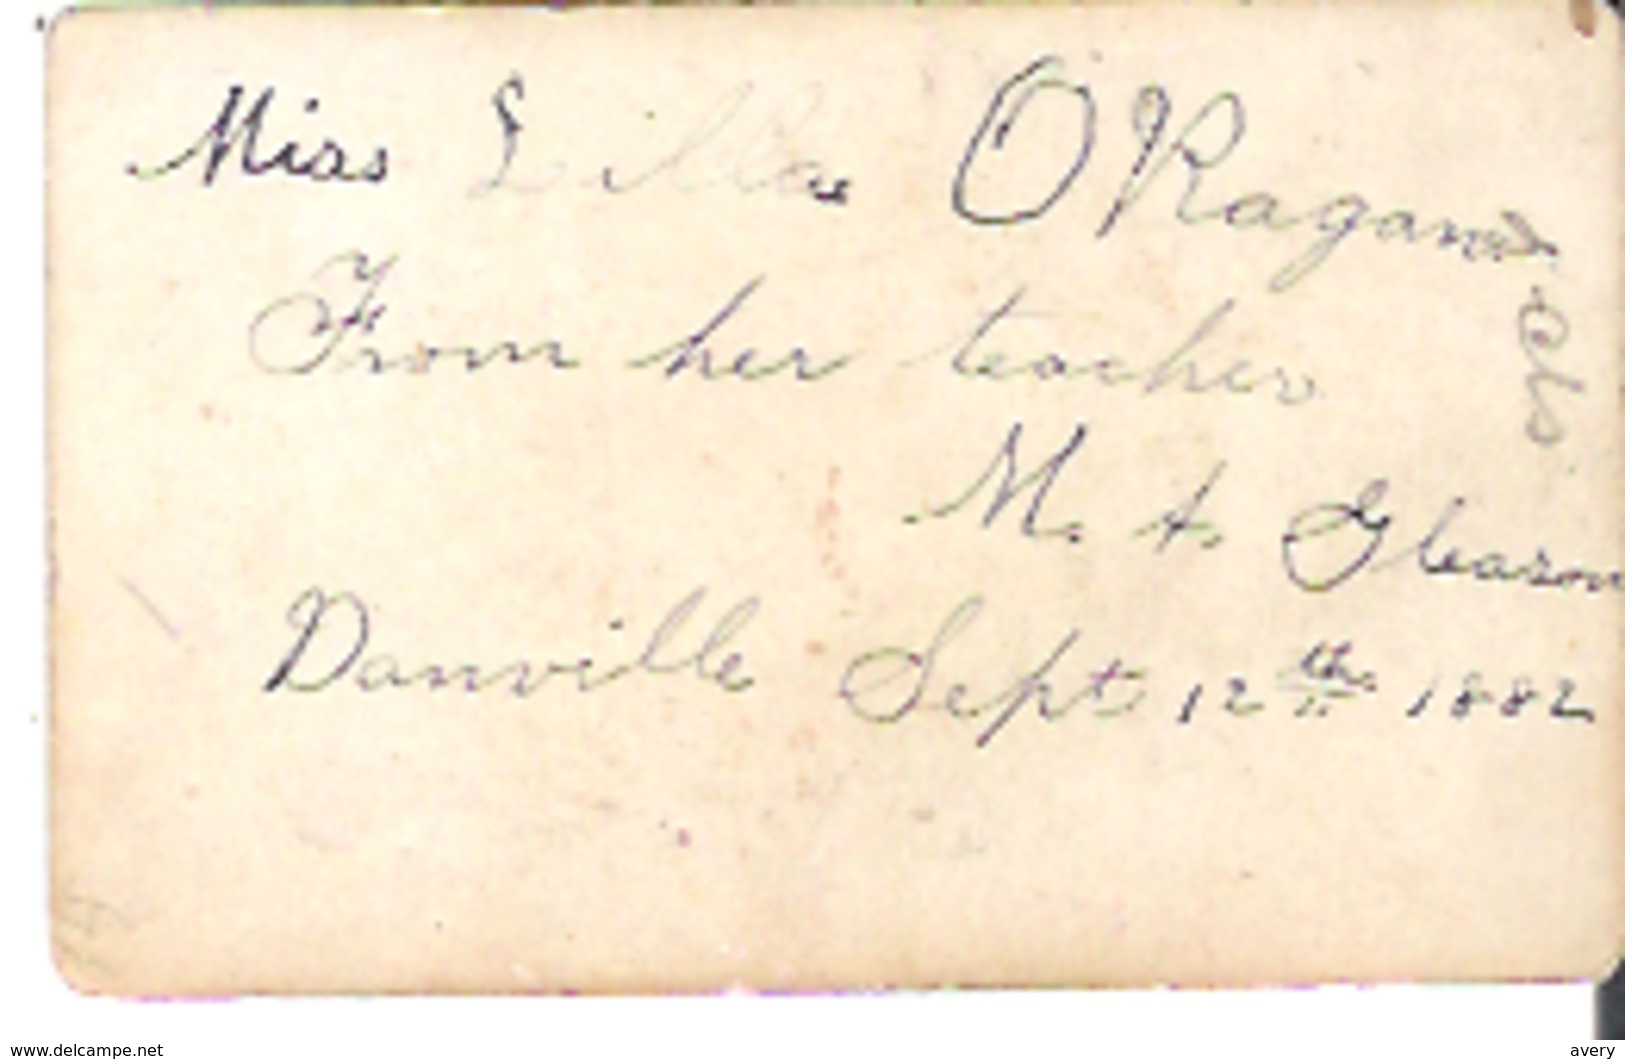 Miss Lilla O'Ragan
From her teacher
M. A. Gleason
Danville Sept 12th 1882
www.delcampe.net
avery